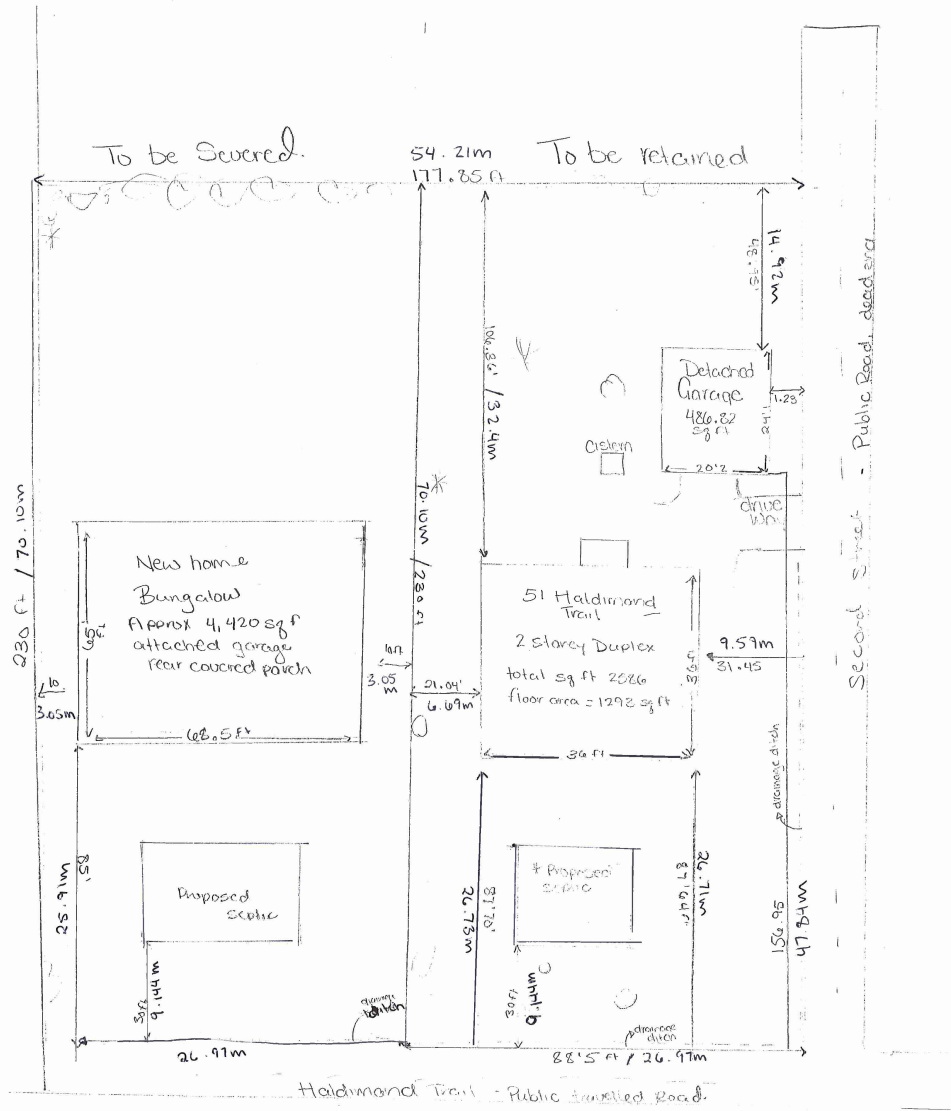 To be Severed.
54.21m
177.85 ft
To be retained
14.92m
48.95'
106.36' / 32.4m
Detached
Garage
486.82
sq ft
24'1
1.23
20'2
Cistern
drive
way
230 ft / 70.10m
70.10m / 230 ft
New home
Bungalow
Approx 4,420 sq f
attached garage
rear covered porch
68.5 ft
10
3.05m
10ft
3.05
m
21.04'
6.69m
51 Haldimand
Trail
2 Storey Duplex
total sq ft 2586
floor area = 1293 sq ft
36 ft
36 ft
9.59m
31.45
Second Street - Public Road, dead end
drainage ditch
25.91m
85'
Proposed
septic
30ft
9.144m
drainage
ditch
26.97m
26.73m
87'70'
* Proposed
septic
30ft
9.144m
26.71m
87'64 ft
156.95
47.84m
drainage
ditch
88'5 ft / 26.97m
Haldimand Trail - Public travelled Road.